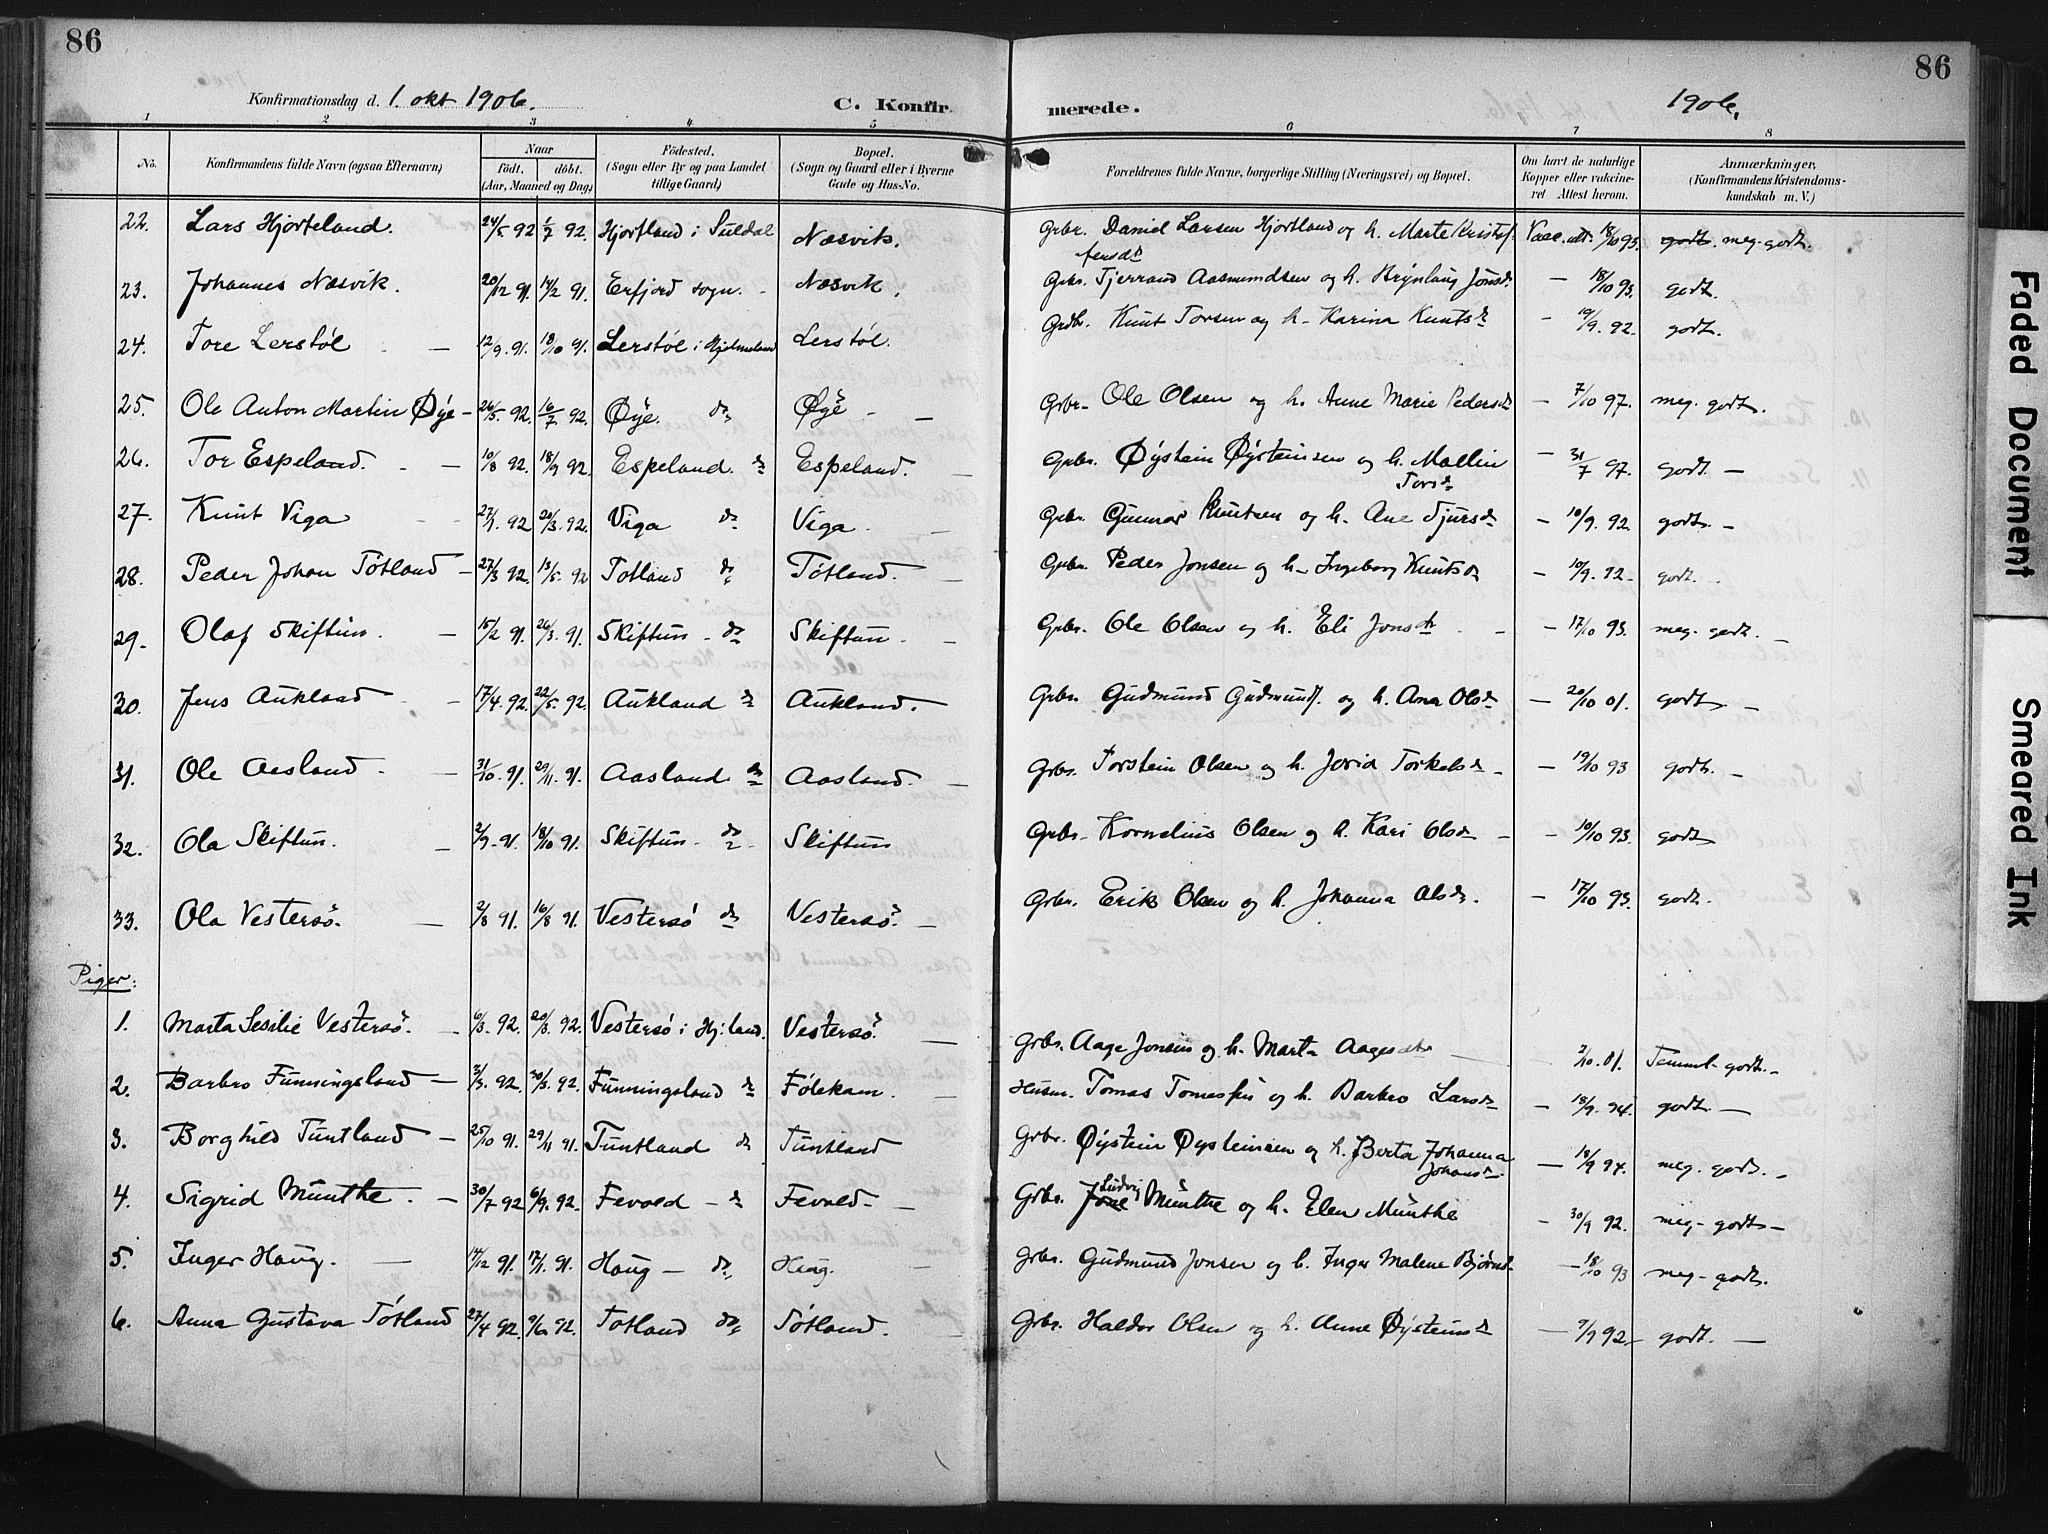 86
86
Konfirmationsdag d. 1. okt 1906.
C. Konfirmerede.
1906.
1 2 3 4 5 6 7 8
No.
Konfirmandens fulde Navn (ogsaa Efternavn)
Naar
født. døbt.
(Aar, Maaned og Dag)
Fødested.
(Sogn eller By og paa Landet
tillige Gaard)
Bopæl.
(Sogn og Gaard eller i Byerne
Gade og Hus-No.
Forældrenes fulde Navne, borgerlige Stilling (Næringsvei) og Bopæl.
Om havt de naturlige
Kopper eller vakcine-
ret Attest herom.
Anmærkninger,
(Konfirmandens Kristendoms-
kundskab m. V.)
22. Lars Hjorteland. 24/5 92 1/7 92. Hjortland i Suldal Næsvik. Grbr. Daniel Larsen Hjortland og h. Marte Kristof- Vacc. att. 18/10 93. godt. meg. godt.
fersdr
23. Johannes Næsvik. 20/12 91. 14/2 91. Erfjord sogn. - Næsvik. Grbr. Tjerrand Aasmundsen og h. Jonsdr — 18/10 93. godt.
24. Tore Lerstøl - — 12/9. 91. 18/10 91. Lerstøl i Hjelmeland Lerstøl. Grdbr. Knut Torsen og h. Karina Knutsdr - 19/9. 92. godt.
25. Ole Anton Martin Øye - 26/5. 92. 16/7 92. Øye. do Øye - — Grbr. Ole Olsen og h. Anne Marie Pedersdr — 7/10 97. meg. godt.
26. Tor Espeland. - — 10/8 92. 18/9 92. Espeland. do Espeland. — Grbr. Øystein Øysteinsen og h. Mallin — 31/7 97. godt. —
Torsdr
27. Knut Viga - - 27/1. 92 20/3. 92. Viga do Viga. — Grbr. Gunnar Knutsen og h. Ane Sjursdr — 10/9. 92. godt. -
28. Peder Johan Tøtland - 27/3 92. 13/5. 92 Totland do Tøtland. — Grbr. Peder Jonsen og h. Ingeborg Knutsdr — 10/9. 92. godt. -
29. Olaf Skiftun. — 15/2 91. 26/3. 91. Skiftun - do Skiftun. — Grbr. Ole Olsen og h. Eli Jonsdtr - — 17/10 93. meg. godt. -
30. Jens Aukland - - 17/4. 92. 22/5. 92 Aukland do Aukland. — Grbr. Gudmund Gudmunds. og h. Ana Olsdr — 20/10 01. godt -
31. Ole Aasland. - — 31/10. 91. 29/11 91. Aasland do Aasland. — Grbr. Torstein Olsen og h. Joria Torkelsdr - — 19/10 93 godt. -
32. Ola Skiftun. — 2/9. 91. 18/10 91. Skiftun - do Skiftun Grbr. Kornelius Olsen og h. Kari Olsdr - — 10/10 93. godt
33. Ola Vestersø. — 2/8 91. 16/8 91. Vestersø do Vestersø. — Grbr. Erik Olsen og h. Johanna Olsdr. — 17/10 93. godt.
Piger:
1. Marta Sesilie Vestersø. - 6/3. 92. 20/3. 92. Vestersø i Hj:land. Vestersø. — Grbr. Aage Jonsen og h. Marta Aagesdtr — 2/10. 01. Temml. godt. -
2. Barbro Funningsland — 3/3. 92. 30/3. 92. Funningsland do Følekam. — Husm. Tomas Tomassen og h. Barbro Larsdr — 18/9. 94. godt —
3. Borghild Tuntland - 25/10 91. 29/11 91. Tuntland do Tuntland Grbr. Øystein Øysteinsen og h. Berta Johanna — 18/9 94. meg. godt. -
Johansdr
4. Sigrid Munthe. - 30/7 92 6/9. 92. Fevold - do Fevold - — Grbr. Jone Ludvig Munthe og h. Elen Munthe — 30/9 92. meg. godt -
5. Inger Haug. — 14/12 91. 17/1. 91. Haug - do Haug. — Grbr. Gudmund Jonsen og h. Inger Malene Bjørnd. — 18/10 93 meg. godt.
6. Anna Gustava Tøtland 27/4 92. 9/6 92. Totland do Tøtland. — Grbr. Haldor Olsen og h. Anne Øysteinsdr — 9/9 92 - godt. —
Faded Document
Smeared Ink